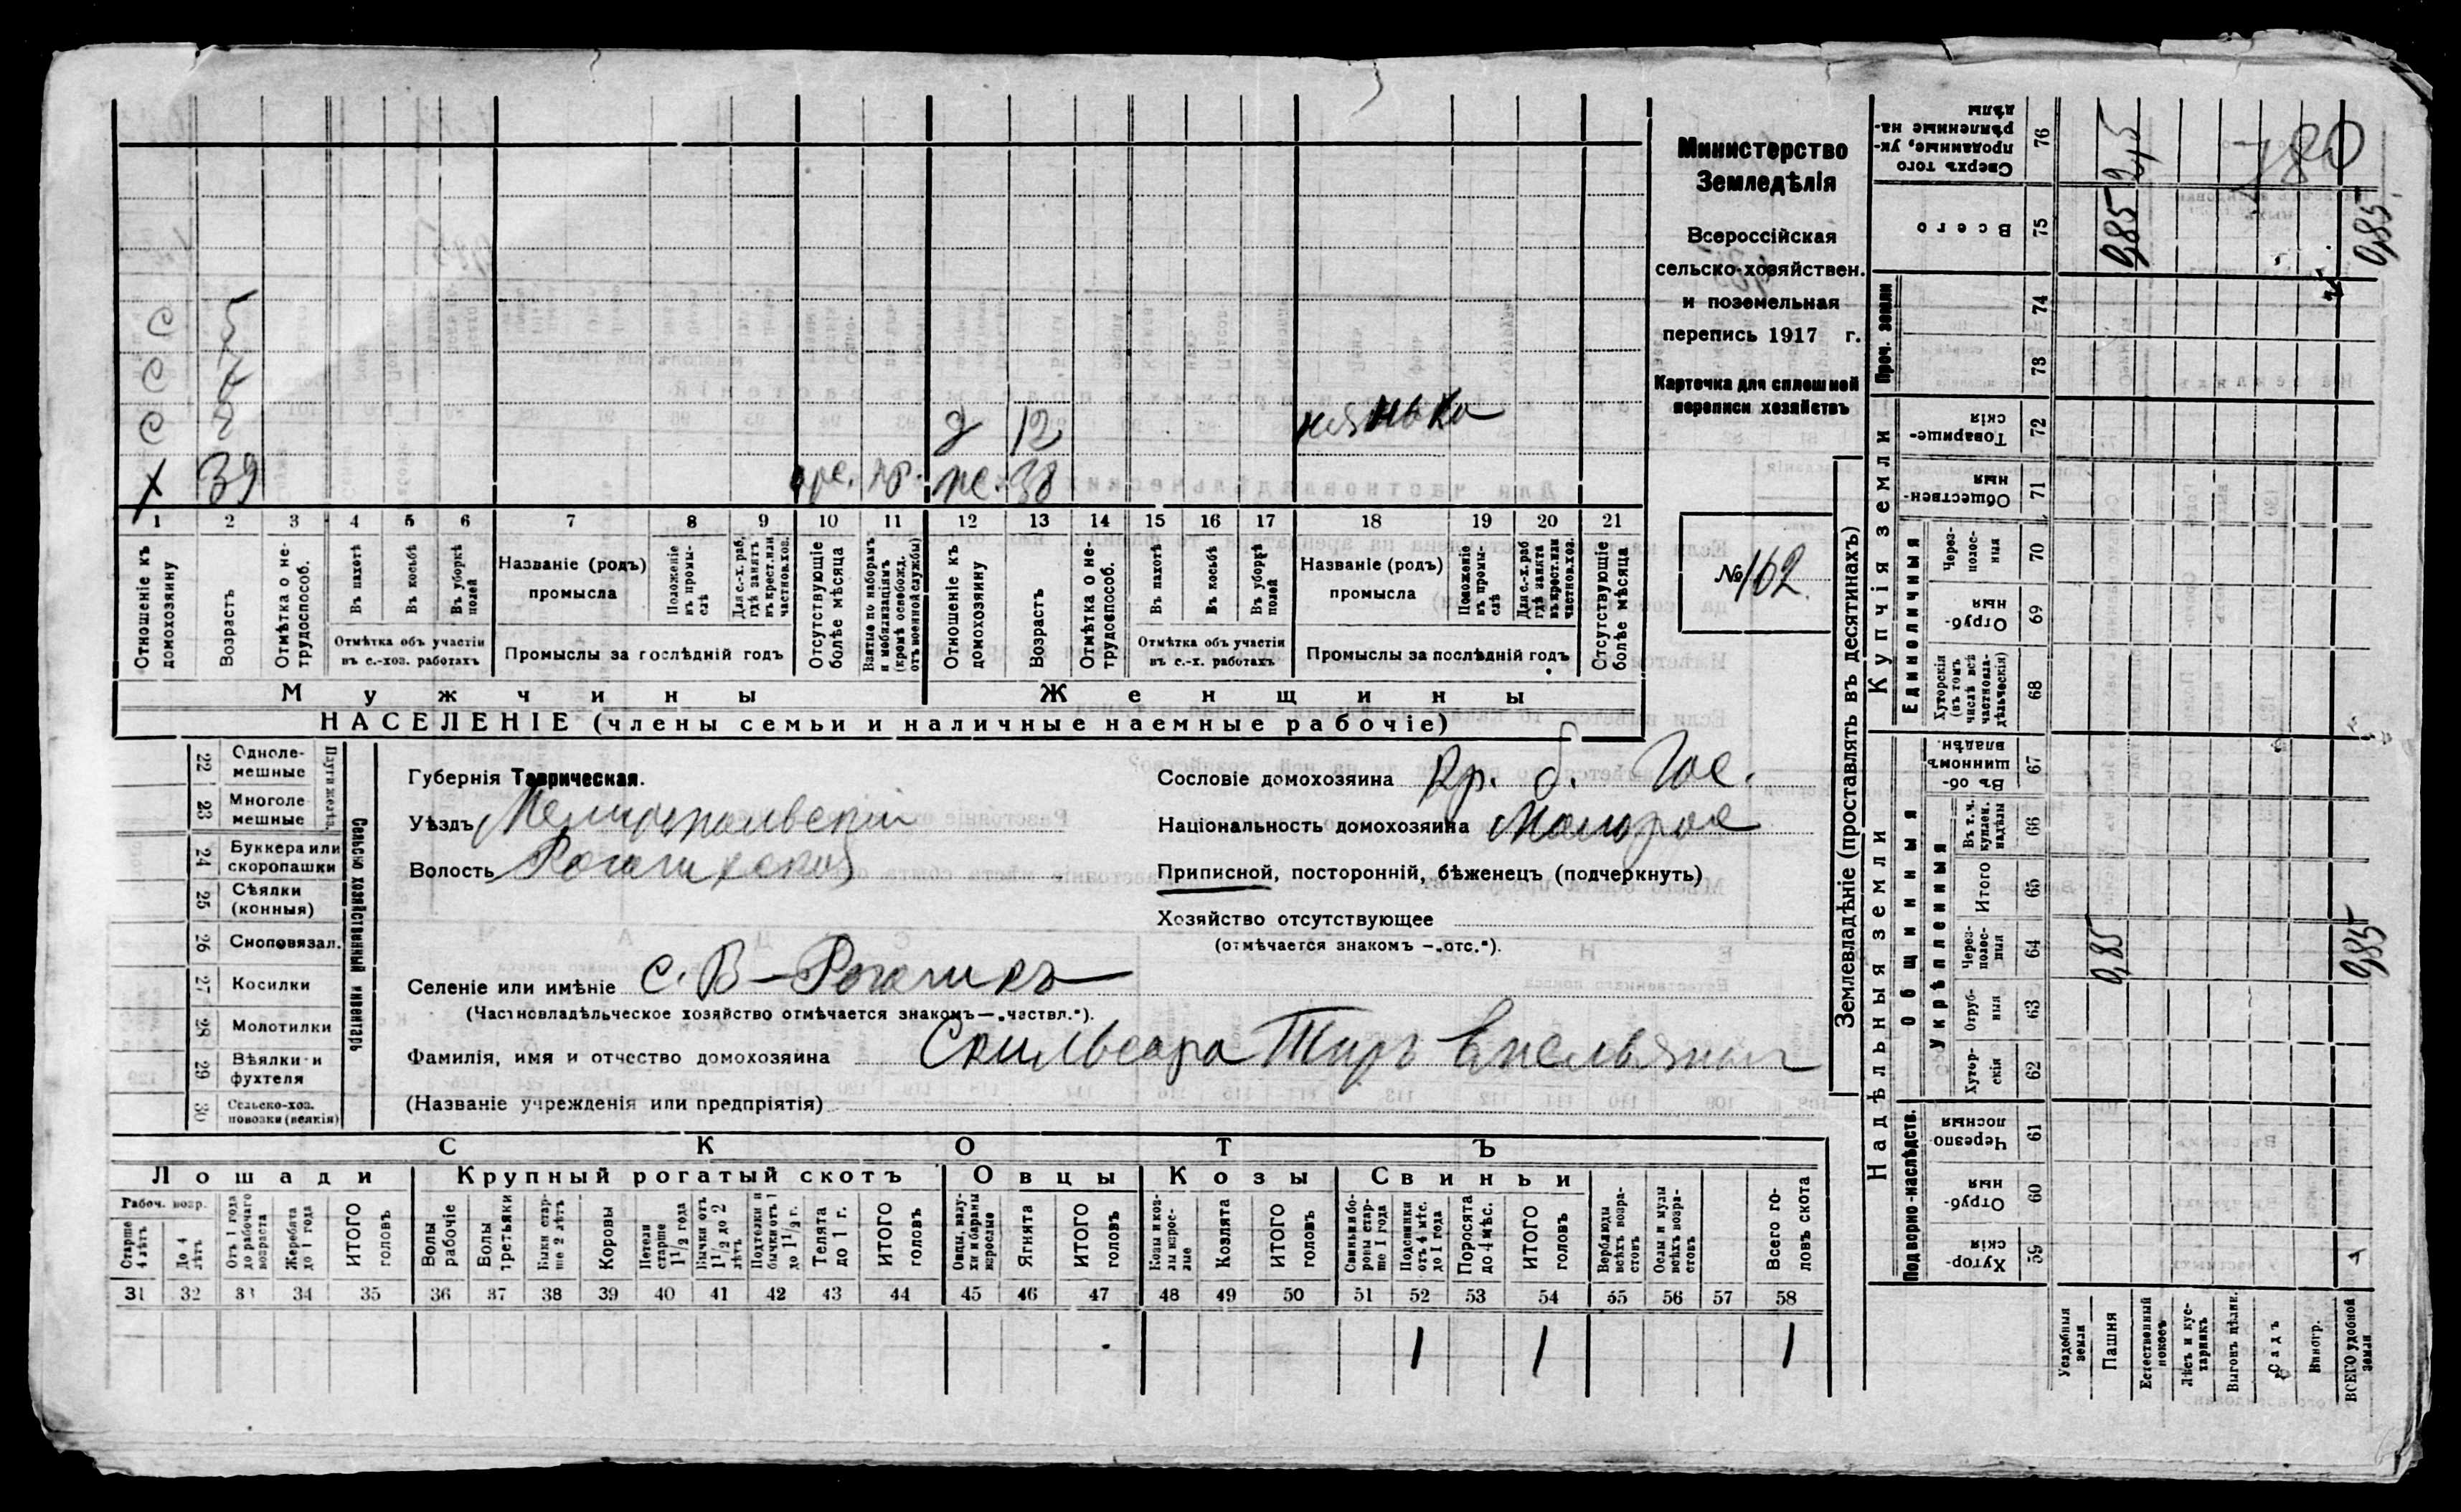 Министерство
Земледѣлія
Всероссійская
сельско-хозяйствен.
и поземельная
перепись 1917 г.
Карточка для сплошной
переписи хозяйствъ
№ 162.
С
С 7
С
д 12 нянька
х 39 ж. 38
1 2 3 4 5 6 7 8 9 10 11 12 13 14 15 16 17 18 19 20 21
Отношеніе къ домохозяину
Возрастъ
Отмѣтка о не-трудоспособ.
Въ пахотѣ
Въ косьбѣ
Въ уборкѣ полей
Отмѣтка объ участіи въ с.-хоз. работахъ
Названіе (родъ) промысла
Положеніе въ промы-слѣ
Для с.-х. раб. гдѣ занятъ въ крест. или частнов. хоз.
Промыслы за послѣдній годъ
Отсутствующіе болѣе мѣсяца
Взятые по наборамъ и мобилизаціямъ (кромѣ освобожд. отъ военной службы)
Отношеніе къ домохозяину
Возрастъ
Отмѣтка о не-трудоспособ.
Въ пахотѣ
Въ косьбѣ
Въ уборкѣ полей
Отмѣтка объ участіи въ с.-х. работахъ
Названіе (родъ) промысла
Положеніе въ промы-слѣ
Для с.-х. раб гдѣ занята въ крест. или частнов. хоз.
Промыслы за послѣдній годъ
Отсутствующіе болѣе мѣсяца
Мужчины Женщины
НАСЕЛЕНІЕ (члены семьи и наличные наемные рабочіе)
Сельско хозяйственный инвентарь
Плуги желѣз.
22 Одноле-мешные
23 Многоле мешные
24 Буккера или скоропашки
25 Сѣялки (конныя)
26 Сноповязал.
27 Косилки
28 Молотилки
29 Вѣялки и фухтеля
30 Сельско-хоз. повозки (всякія)
Губернія Таврическая.
Уѣздъ Мелитопольскій
Волость Рогачикская
Сословіе домохозяина Кр. б. Гос.
Національность домохозяина Малорос
Приписной, посторонній, бѣженецъ (подчеркнуть)
Хозяйство отсутствующее
(отмѣчается знакомъ —„отс.").
Селеніе или имѣніе с. В-Рогачикъ
(Частновладѣльческое хозяйство отмѣчается знакомъ—„частвл.").
Фамилія, имя и отчество домохозяина
(Названіе учрежденія или предпріятія)
СКОТЪ
Лошади Крупный рогатый скотъ Овцы Козы Свиньи
Рабоч. возр.
Старше 4 лѣтъ
До 4 лѣтъ
Отъ 1 года до рабочаго возраста
Жеребята до 1 года
ИТОГО головъ
Волы рабочіе
Волы третьяки
Быки стар-ше 2 лѣтъ
Коровы
Нетели старше 1½ года
Бычки отъ 1½ до 2 лѣтъ
Подтелки и бычки отъ 1 до 1½ г.
Телята до 1 г.
ИТОГО головъ
Овцы, валу-хи и бараны взрослые
Ягнята
ИТОГО головъ
Козы и коз-лы взрос-лые
Козлята
ИТОГО головъ
Свиньи и бо-ровы стар-ше 1 года
Подсвинки отъ 4 мѣс. до 1 года
Поросята до 4 мѣс.
ИТОГО головъ
Верблюды всѣхъ возра-стовъ
Ослы и мулы всѣхъ возра-стовъ
Всего го-ловъ скота
31 32 33 34 35 36 37 38 39 40 41 42 43 44 45 46 47 48 49 50 51 52 53 54 55 56 57 58
1 1 1
Землевладѣніе (проставлять въ десятинахъ)
Надѣльныя земли
Купчія земли
Проч. земли
Подворно-наслѣдств.
Общинныя
Укрѣпленныя
Единоличныя
Сверхъ того проданные, ук-рѣпленные на-дѣлы 76
Всего 75
74
73
Товарище-скія 72
Обществен-ныя 71
Через-полос-ныя 70
Отруб-ныя 69
Хуторскія (въ томъ числѣ всѣ частновла-дѣльческія) 68
Въ об-щинномъ владѣн. 67
Въ т. ч. куплен. надѣлы 66
Итого 65
Через-полос-ныя 64
Отруб-ныя 63
Хутор-скія 62
Черезпо лосныя 61
Отруб-ныя 60
Хутор-скія 59
Усадебныя земли
Пашня
Естественный покосъ
Лѣсъ и кус-тарникъ
Выгонъ цѣлин.
Садъ
Виногр.
ВСЕГО удобной земли
780
0,85
0,85
0,85
0,85